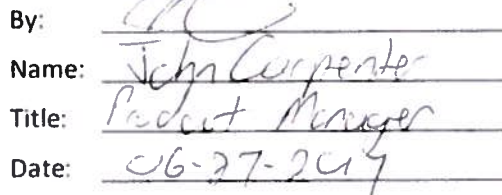 By:
Name: John Carpenter
Title: Product Manager
Date: 06-27-2017